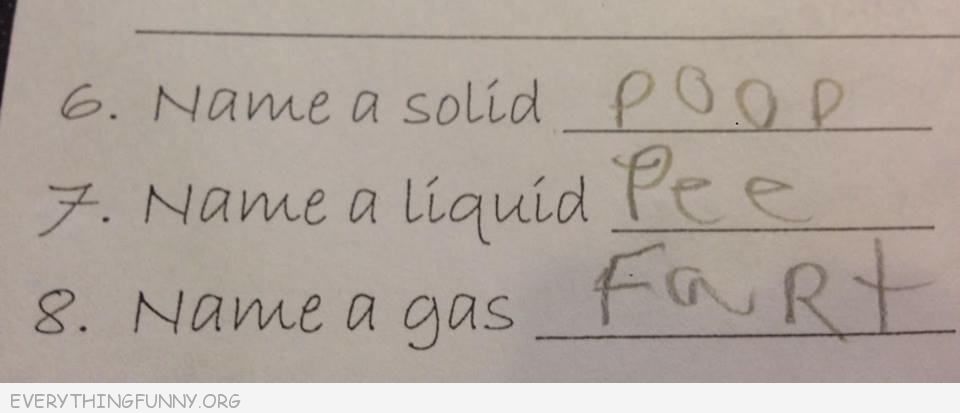 6. Name a solid POOP
7. Name a liquid Pee
8. Name a gas FaRt
EVERYTHINGFUNNY.ORG